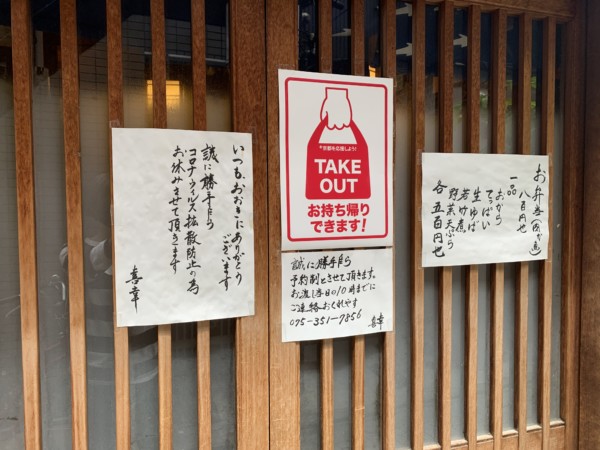 いつもおおきにありがとう
ございます
誠に勝手乍ら
コロナウィルス拡散防止の為
お休みさせて頂きます
喜幸
#京都を応援しよう!
TAKE
OUT
お持ち帰り
できます!
誠に勝手乍ら
予約制とさせて頂きます。
お渡し当日の10時までに
ご連絡おくれやす
075-351-7856
喜幸
八百円也
一品
おから
てっぱい
生ゆば
芳け煮
野菜天ぷら
各五百円也